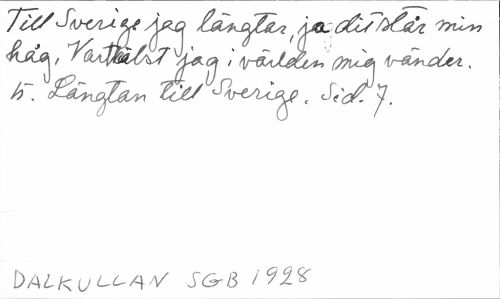 Till Sverige jag längtar, ja dit står min
håg, Varthälst jag i världen mig vänder.
5. Längtan till Sverige. Sid. 7.
DALKULLAN SGB 1928